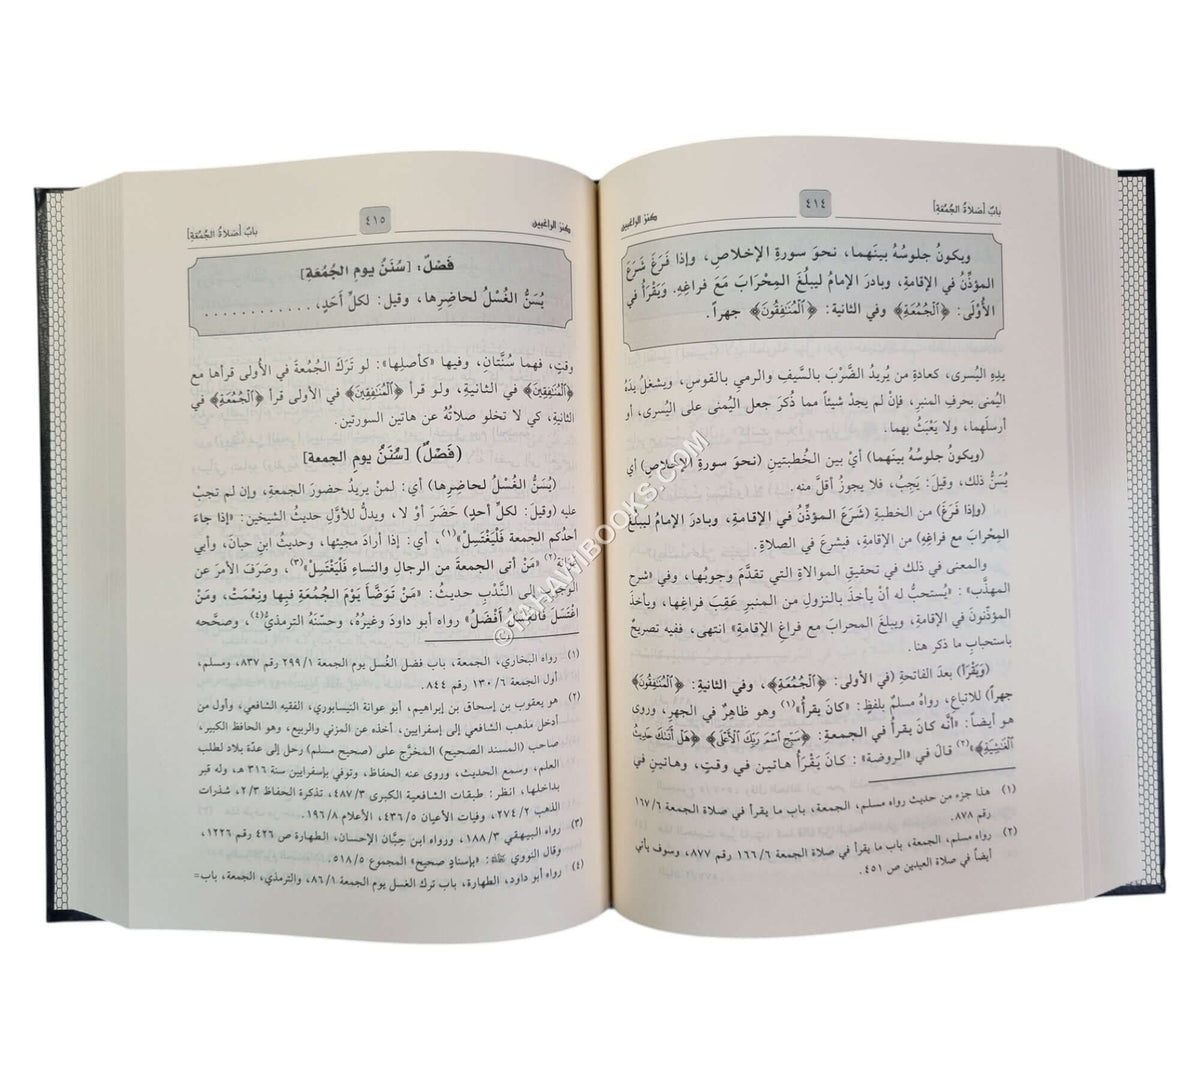 بابُ [صَلاةُ الجُمُعَةِ]
٤١٤
كنزُ الراغبين
ويكونُ جلوسُهُ بينَهما، نحوَ سورةِ الإخلاصِ، وإذا فَرَغَ شَرَعَ
المؤذِّنُ في الإقامةِ، وبادرَ الإمامُ ليبلُغَ المِحْرَابَ مَعَ فراغِهِ. ويَقْرَأُ في
الأُوْلَى: ﴿ٱلْجُمُعَةِ﴾ وفي الثانية: ﴿ٱلْمُنَٰفِقُونَ﴾ جهراً.
يدِهِ اليُسرى، كعادةِ من يُريدُ الضَّرْبَ بالسَّيفِ والرمي بالقوسِ، ويشغلُ يدَهُ
اليُمنى بحرفِ المنبرِ، فإنْ لم يجدْ شيئاً مما ذُكرَ جعل اليُمنى على اليُسرى، أو
أرسلَهما، ولا يَعْبَثُ بهما.
(ويكونُ جلوسُهُ بينهما) أيْ بين الخُطبتينِ (نحوَ سورةِ الإخلاصِ) أي
يُسَنُّ ذلك، وقيلَ: يَجِبُ، فلا يجوزُ أقلَّ منه.
(وإذا فَرَغَ) من الخطبةِ (شَرَعَ المؤذِّنُ في الإقامةِ، وبادرَ الإمامُ ليبلغَ
المِحْرابَ مع فراغِهِ) من الإقامةِ، فيشرعَ في الصلاةِ.
والمعنى في ذلك في تحقيقِ الموالاةِ التي تقدَّمَ وجوبُها، وفي «شرح
المهذَّب»: «يُستحبُّ له أنْ يأخذَ بالنزولِ من المنبرِ عَقِبَ فراغِها، ويأخذَ
المؤذّنونَ في الإقامةِ، ويبلغَ المحرابَ مع فراغِ الإقامةِ» انتهى، ففيه تصريحٌ
باستحبابِ ما ذكر هنا.
(ويَقْرَأُ) بعدَ الفاتحةِ (في الأولى: ﴿ٱلْجُمُعَةِ﴾، وفي الثانيةِ: ﴿ٱلْمُنَٰفِقُونَ﴾
جهراً) للاتباعِ، رواهُ مسلمٌ بلفظِ: «كانَ يقرأُ»(١) وهو ظاهرٌ في الجهرِ، وروى
هو أيضاً: «أنَّه كانَ يقرأُ في الجمعةِ: ﴿سَبِّحِ ٱسْمَ رَبِّكَ ٱلْأَعْلَى﴾ ﴿هَلْ أَتَىٰكَ حَدِيثُ
ٱلْغَٰشِيَةِ﴾»(٢) قالَ في «الروضة»: كانَ يَقْرَأُ هاتينِ في وقتٍ، وهاتينِ في
(١) هذا جزء من حديث رواه مسلم، الجمعة، باب ما يقرأ في صلاة الجمعة ١٦٧/٦
رقم ٨٧٨.
(٢) رواه مسلم، الجمعة، باب ما يقرأ في صلاة الجمعة ١٦٦/٦ رقم ٨٧٧، وسوف يأتي
أيضاً في صلاة العيدين ص ٤٥١.
بابُ [صَلاةُ الجُمُعَةِ]
٤١٥
كنزُ الراغبين
فَصْلٌ: [سُنَنُ يومِ الجُمُعَةِ]
يُسَنُّ الغُسْلُ لحاضِرِها، وقيل: لكلِّ أَحَدٍ، . . . . . . . . . . . .
وقتٍ، فهما سُنَّتانِ، وفيها «كأصلِها»: لو تَرَكَ الجُمُعةَ في الأولى قرأها مع
﴿ٱلْمُنَٰفِقِينَ﴾ في الثانيةِ، ولو قرأَ ﴿ٱلْمُنَٰفِقِينَ﴾ في الأولى قرأَ ﴿ٱلْجُمُعَةِ﴾ في
الثانيةِ، كي لا تخلو صلاتُهُ عن هاتين السورتين.
(فَصْلٌ) [سُنَنُ يومِ الجمعة]
(يُسَنُّ الغُسْلُ لحاضِرِها) أي: لمنْ يريدُ حضورَ الجمعةِ، وإن لم تجبْ
عليه (وقيلَ: لكلِّ أحدٍ) حَضَرَ أوْ لا، ويدلُّ للأوَّلِ حديثُ الشيخين: «إذا جاءَ
أحدُكم الجمعةَ فَلْيَغْتَسِلْ»(١)، أي: إذا أرادَ مجيئَها، وحديثُ ابنِ حبانَ، وأبي
عَوَانَةَ(٢) «مَنْ أتى الجمعةَ من الرجالِ والنساءِ فَلْيَغْتَسِلْ»(٣)، وصَرَفَ الأمرَ عن
الوجوبِ إلى النَّدْبِ حديثُ: «مَنْ تَوَضَّأَ يَوْمَ الجُمُعَةِ فبِها ونِعْمَتْ، ومَنْ
اغْتَسَلَ فَالْغُسْلُ أَفْضَلُ» رواه أبو داودَ وغيرُهُ، وحسّنَهُ الترمذيُّ(٤)، وصحَّحه
(١) رواه البخاري، الجمعة، باب فضل الغُسل يوم الجمعة ٢٩٩/١ رقم ٨٣٧، ومسلم،
أول الجمعة ١٣٠/٦ رقم ٨٤٤.
(٢) هو يعقوب بن إسحاق بن إبراهيم، أبو عوانة النيسابوري، الفقيه الشافعي، وأول من
أدخل مذهب الشافعي إلى إسفرايين، أخذه عن المزني والربيع، وهو الحافظ الكبير،
صاحب (المسند الصحيح) المخرَّج على (صحيح مسلم) رحل إلى عدّة بلاد لطلب
العلم، وسمع الحديث، وروى عنه الحفاظ، وتوفي بإسفرايين سنة ٣١٦ هـ، وله قبر
بداخلها، انظر: طبقات الشافعية الكبرى ٤٨٧/٣، تذكرة الحفاظ ٣/٢، شذرات
الذهب ٢٧٤/٢، وفيات الأعيان ٤٣٦/٥، الأعلام ١٩٦/٨.
(٣) رواه البيهقي ١٨٨/٣، ورواه ابن حِبَّان الإحسان، الطهارة ص ٤٢٦ رقم ١٢٢٦،
وقال النووي رحمه الله: «بإسنادٍ صحيح» المجموع ٥١٨/٥.
(٤) رواه أبو داود، الطهارة، باب ترك الغسل يوم الجمعة ٨٦/١، والترمذي، الجمعة، باب=